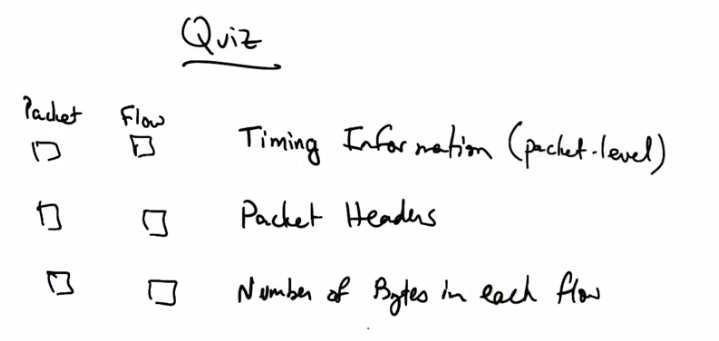 Quiz
Packet Flow
Timing Information (packet-level)
Packet Headers
Number of Bytes in each flow